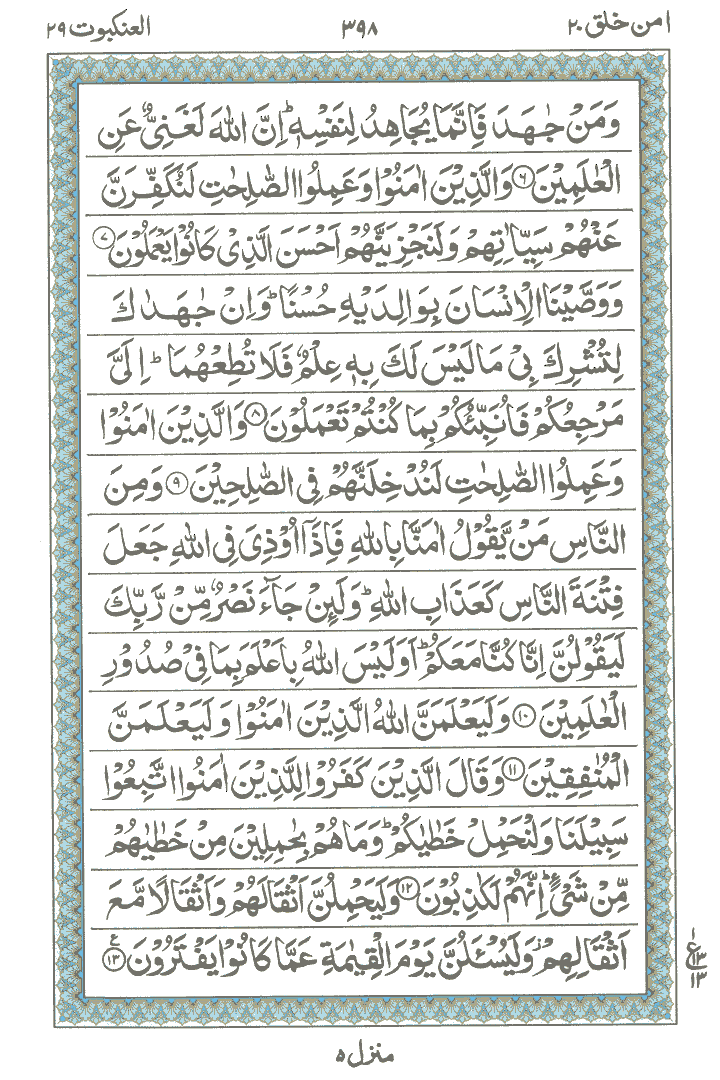 امن خلق ۲۰ ۳۹۸ العنكبوت ۲۹
وَمَنْ جٰهَدَ فَاِنَّمَا يُجَاهِدُ لِنَفْسِهٖ ؕ اِنَّ اللّٰهَ لَغَنِىٌّ عَنِ
الْعٰلَمِيْنَ ۶ وَالَّذِيْنَ اٰمَنُوْا وَعَمِلُوا الصّٰلِحٰتِ لَنُكَفِّرَنَّ
عَنْهُمْ سَيِّاٰتِهِمْ وَلَنَجْزِيَنَّهُمْ اَحْسَنَ الَّذِىْ كَانُوْا يَعْمَلُوْنَ ۷
وَوَصَّيْنَا الْاِنْسَانَ بِوَالِدَيْهِ حُسْنًا ؕ وَاِنْ جٰهَدٰكَ
لِتُشْرِكَ بِىْ مَا لَيْسَ لَكَ بِهٖ عِلْمٌ فَلَا تُطِعْهُمَا ؕ اِلَىَّ
مَرْجِعُكُمْ فَاُنَبِّئُكُمْ بِمَا كُنْتُمْ تَعْمَلُوْنَ ۸ وَالَّذِيْنَ اٰمَنُوْا
وَعَمِلُوا الصّٰلِحٰتِ لَنُدْخِلَنَّهُمْ فِى الصّٰلِحِيْنَ ۹ وَمِنَ
النَّاسِ مَنْ يَّقُوْلُ اٰمَنَّا بِاللّٰهِ فَاِذَآ اُوْذِىَ فِى اللّٰهِ جَعَلَ
فِتْنَةَ النَّاسِ كَعَذَابِ اللّٰهِ ؕ وَلَئِنْ جَآءَ نَصْرٌ مِّنْ رَّبِّكَ
لَيَقُوْلُنَّ اِنَّا كُنَّا مَعَكُمْ ؕ اَوَلَيْسَ اللّٰهُ بِاَعْلَمَ بِمَا فِىْ صُدُوْرِ
الْعٰلَمِيْنَ ۱۰ وَلَيَعْلَمَنَّ اللّٰهُ الَّذِيْنَ اٰمَنُوْا وَلَيَعْلَمَنَّ
الْمُنٰفِقِيْنَ ۱۱ وَقَالَ الَّذِيْنَ كَفَرُوْا لِلَّذِيْنَ اٰمَنُوا اتَّبِعُوْا
سَبِيْلَنَا وَلْنَحْمِلْ خَطٰيٰكُمْ ؕ وَمَا هُمْ بِحٰمِلِيْنَ مِنْ خَطٰيٰهُمْ
مِّنْ شَىْءٍ ؕ اِنَّهُمْ لَكٰذِبُوْنَ ۱۲ وَلَيَحْمِلُنَّ اَثْقَالَهُمْ وَاَثْقَالًا مَّعَ
اَثْقَالِهِمْ ؗ وَلَيُسْئَلُنَّ يَوْمَ الْقِيٰمَةِ عَمَّا كَانُوْا يَفْتَرُوْنَ ۱۳ ع
۱
ع ۱۳
۱۳
منزل ۵